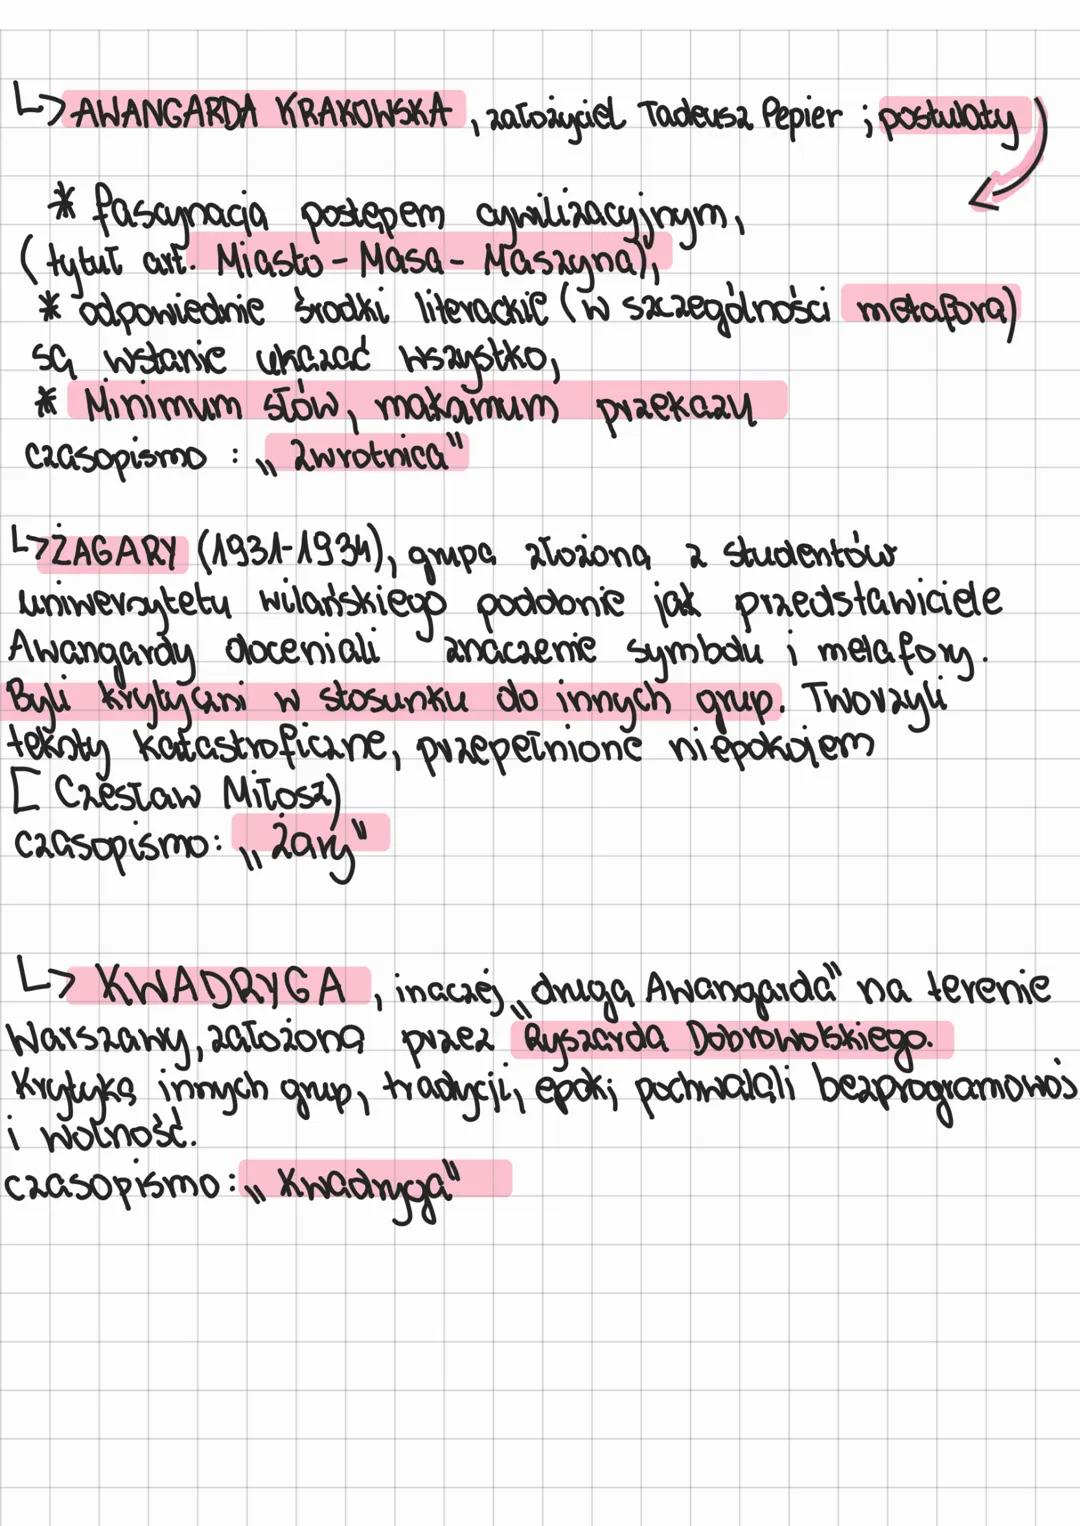 ↳ AWANGARDA KRAKOWSKA, założyciel Tadeusz Pepier; postulaty
* fascynacja postępem cywilizacyjnym,
(tytuł art. Miasto - Masa - Maszyna),
* odpowiednie środki literackie (w szczególności metafora)
są wstanie ukazać wszystko,
* Minimum słów, maksimum przekazu
czasopismo: „Zwrotnica"
↳ ŻAGARY (1931-1934), grupa złożona z studentów
uniwersytetu wilańskiego podobnie jak przedstawiciele
Awangardy doceniali znaczenie symbolu i metafory.
Byli krytyczni w stosunku do innych grup. Tworzyli
teksty katastroficzne, przepełnione niepokojem
[Czesław Miłosz)
czasopismo: „Żary"
↳ KWADRYGA, inaczej „druga Awangarda" na terenie
Warszawy, założona przez Ryszarda Dobrowolskiego.
Krytyka innych grup, tradycji, epoki pochwalali bezprogramowoś
i wolność.
czasopismo: „Kwadryga"